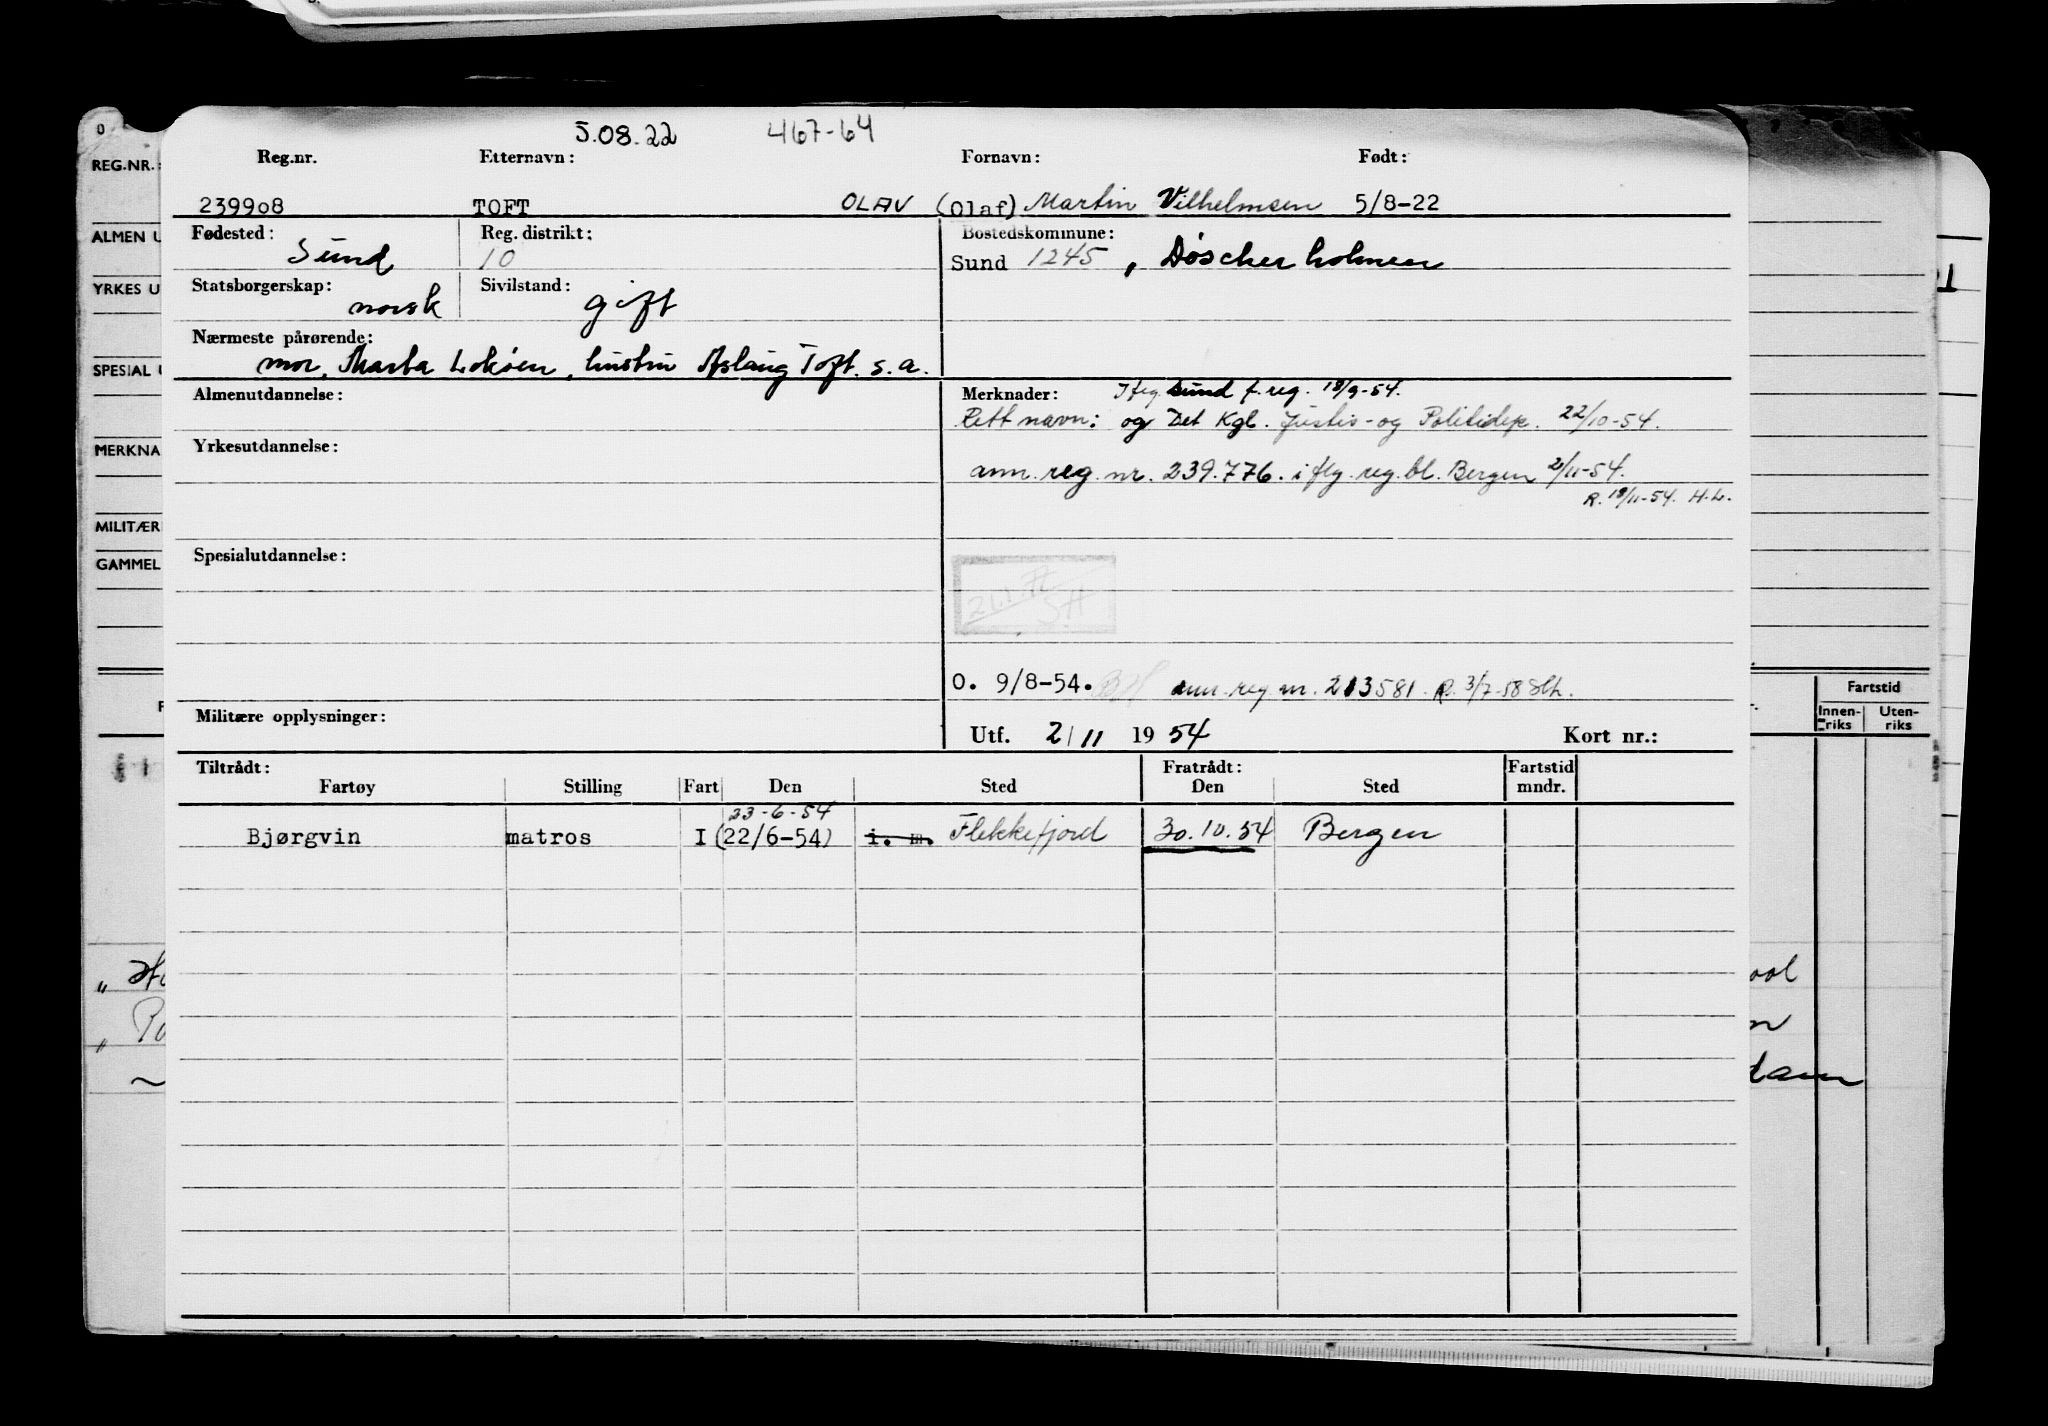 5.08.22 467-64
Reg.nr. Etternavn: Fornavn: Født:
239908 TOFT OLAV (Olaf) Martin Vilhelmsen 5/8-22
Fødested: Sund Reg. distrikt: 10 Bostedskommune: Sund 1245, Døscherholmen
Statsborgerskap: norsk Sivilstand: gift
Nærmeste pårørende:
mor, Marta Lokøen, hustru Aslaug Toft. s.a.
Almenutdannelse:
Merknader: Iføg. Sund f.reg. 18/9-54.
Rett navn: og Det Kgl. Justis- og Politidep. 22/10-54.
Yrkesutdannelse:
ann. reg. nr. 239.776. i flg. reg. bl. Bergen 2/11-54.
R. 18/11-54. H.L.
Spesialutdannelse:
O. 9/8-54. ann. reg. nr. 213581. R. 3/7-58
Militære opplysninger:
Utf. 2/11 1954 Kort nr.:
Tiltrådt: Fratrådt: Fartstid
Fartøy Stilling Fart Den Sted Den Sted mndr.
23-6-54
Bjørgvin matros I (22/6-54) i. m. Flekkefjord 30.10.54 Bergen
REG.NR.:
ALMEN U
YRKES U
SPESIAL U
MERKNA
MILITÆR
GAMMEL
Fartstid
Innen-riks Uten-riks